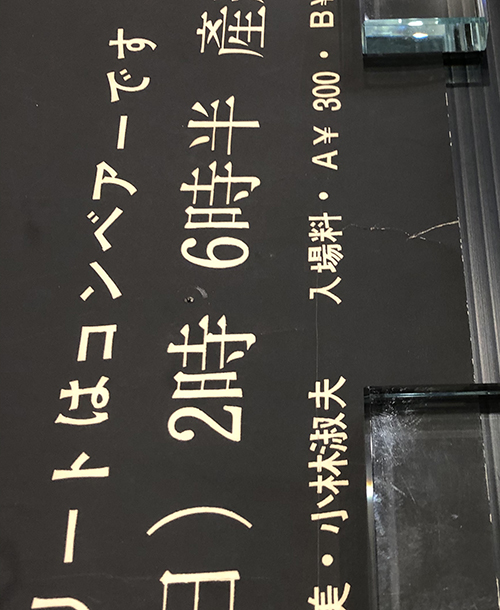 リートはコンベアーです
日) 2時 6時半 産
美・小林淑夫 入場料・A¥300・B¥